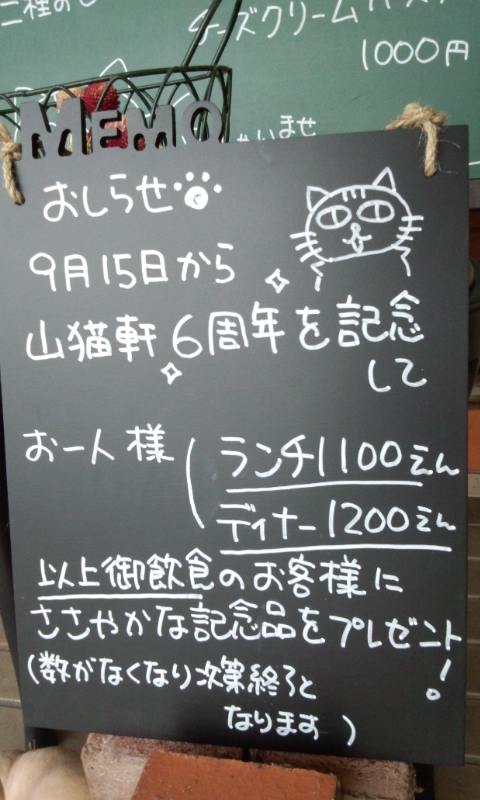 チーズクリーム
1000円
MEMO
おしらせ
9月15日から
山猫軒6周年を記念
して
お一人様
ランチ1100えん
ディナー1200えん
以上御飲食のお客様に
ささやかな記念品をプレゼント!
(数がなくなり次第終了と
なります)